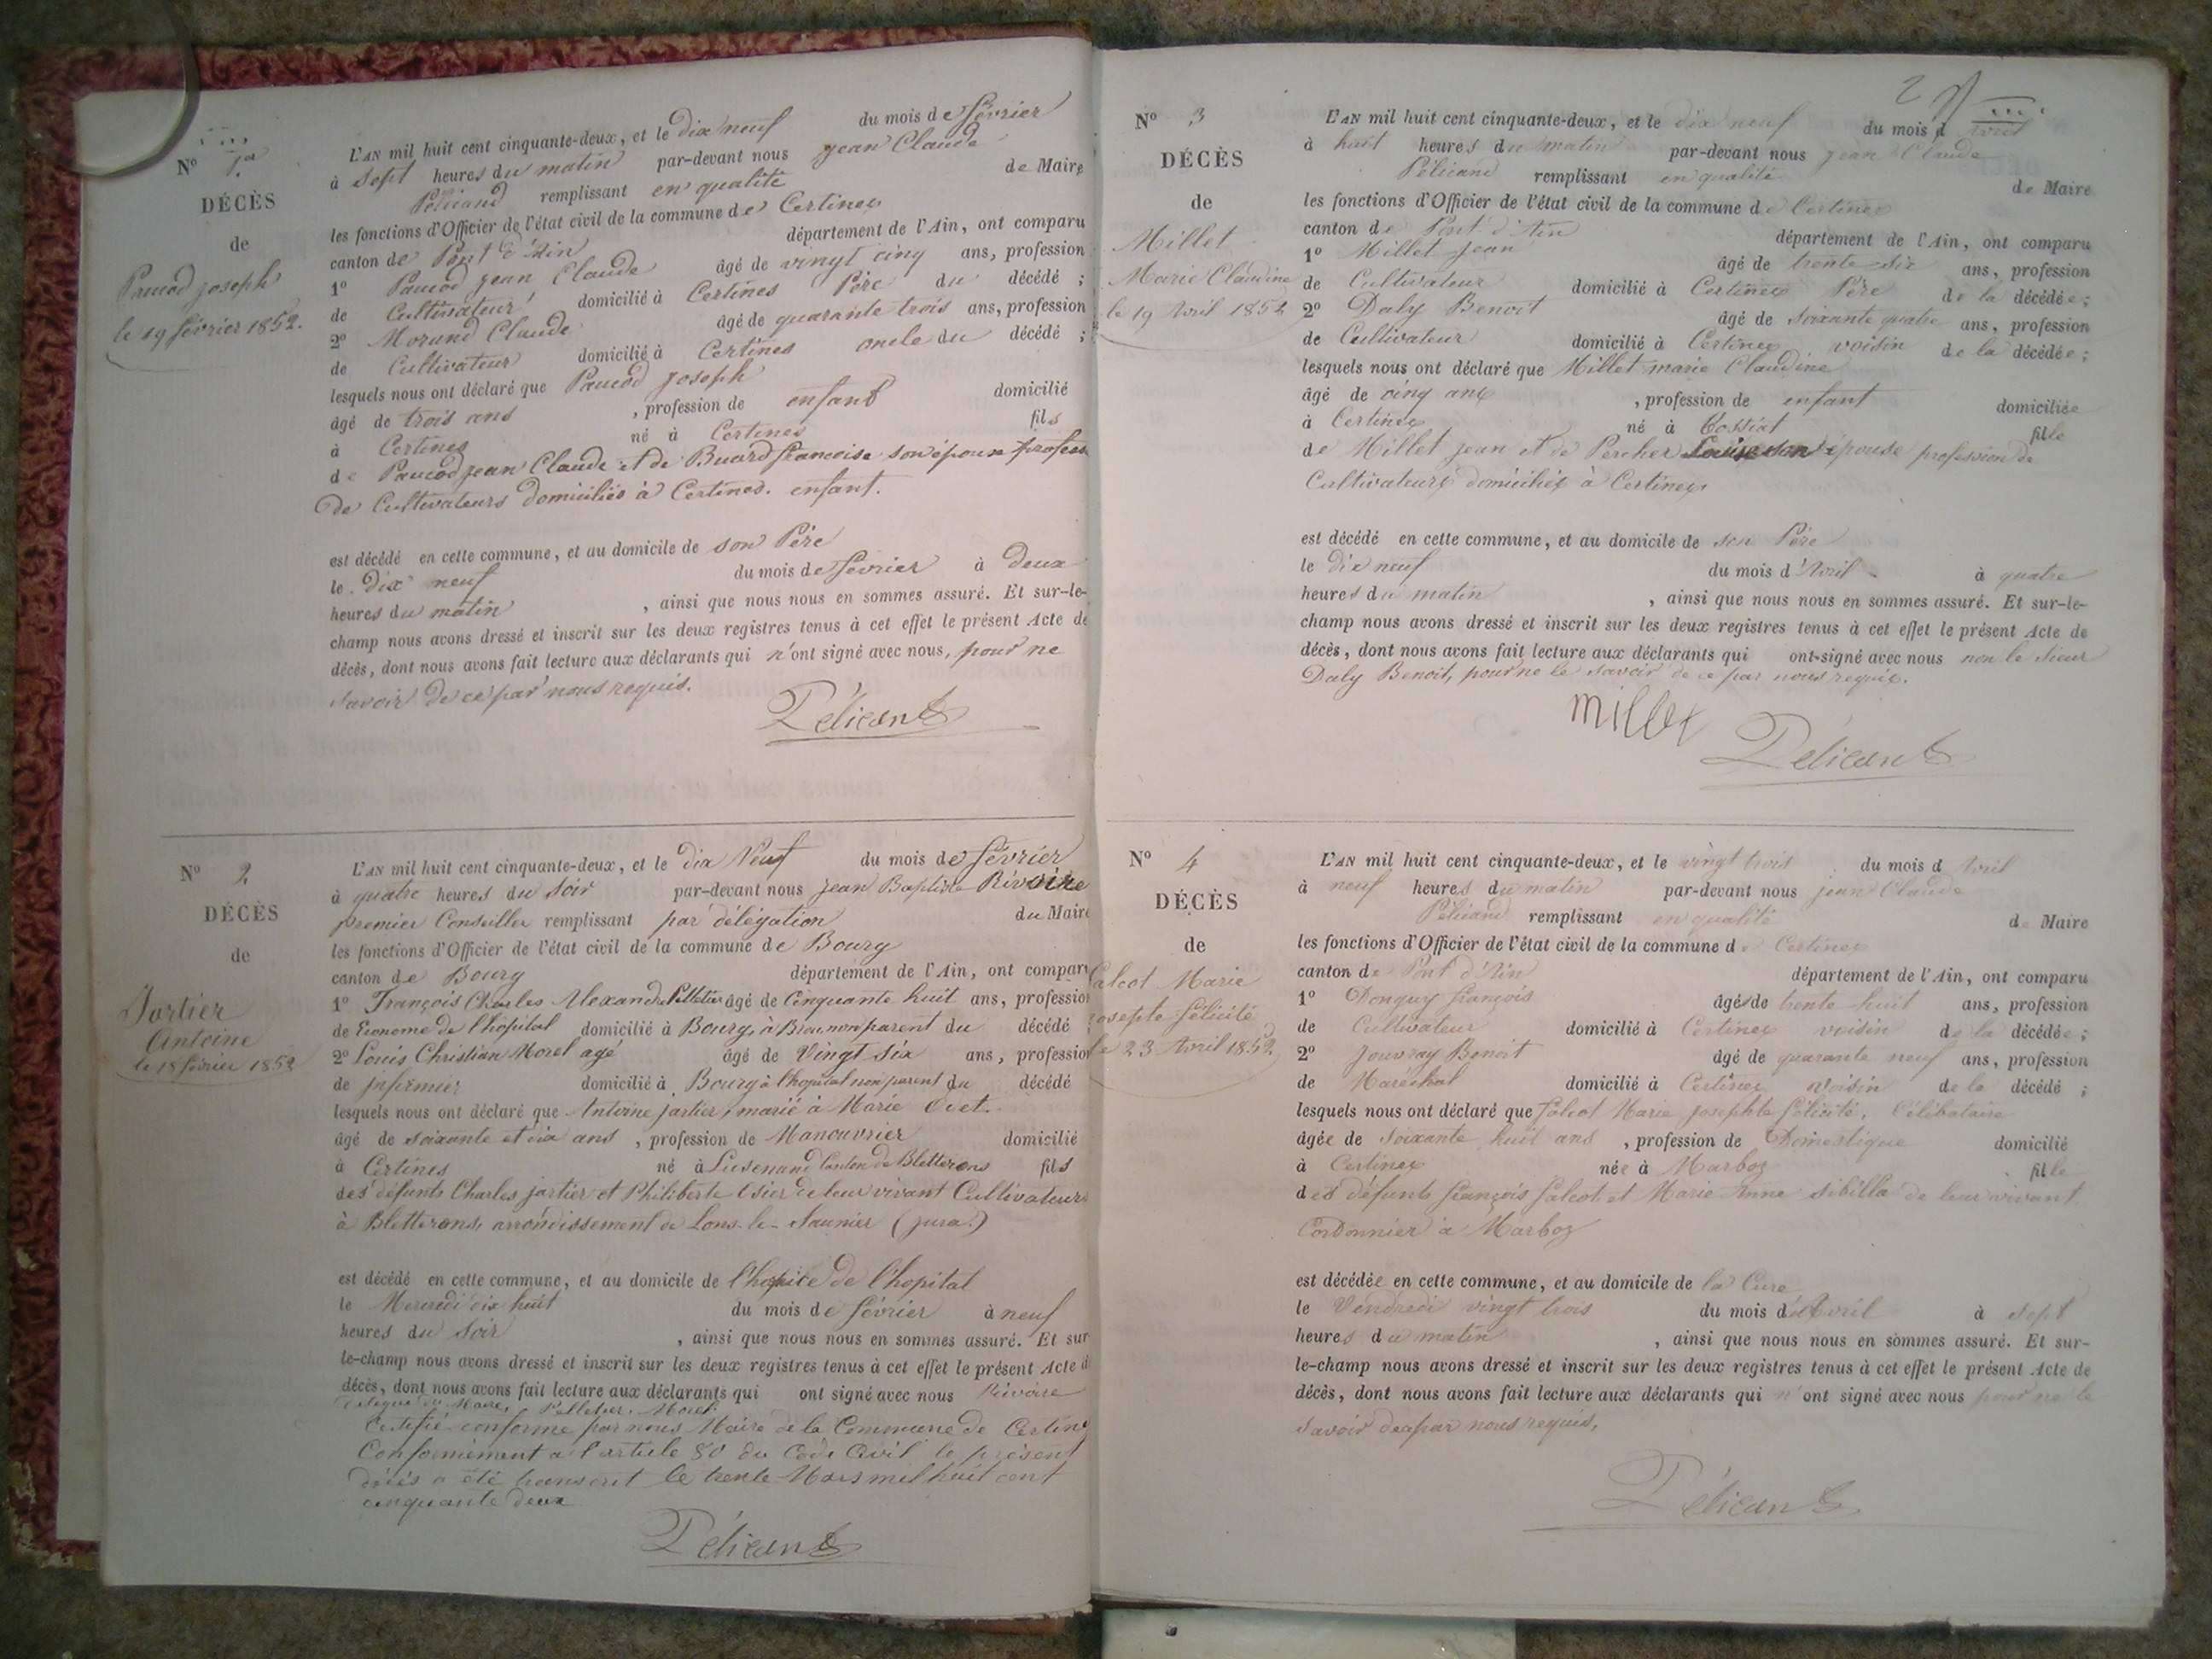 N° 1er
DÉCÈS
de
Paucod joseph
le 19 février 1852.
L'AN mil huit cent cinquante-deux, et le dix neuf du mois de février
à sept heures du matin par-devant nous jean Claude
Pélicand remplissant en qualité de Maire
les fonctions d'Officier de l'état civil de la commune de Certines
canton de Pont d'Ain département de l'Ain, ont comparu
1° Paucod jean Claude âgé de vingt cinq ans, profession
de Cultivateur domicilié à Certines Père du décédé ;
2° Morand Claude âgé de quarante trois ans, profession
de Cultivateur domicilié à Certines oncle du décédé ;
lesquels nous ont déclaré que Paucod joseph
âgé de trois ans , profession de enfant domicilié
à Certines né à Certines fils
de Paucod jean Claude et de Buard francoise son épouse profess
de Cultivateurs domiciliés à Certines. enfant.
est décédé en cette commune, et au domicile de son Père
le dix neuf du mois de février à deux
heures du matin , ainsi que nous nous en sommes assuré. Et sur-le-
champ nous avons dressé et inscrit sur les deux registres tenus à cet effet le présent Acte de
décès, dont nous avons fait lecture aux déclarants qui n'ont signé avec nous, pour ne
savoir de ce par nous requis.
Pélicand
N° 2
DÉCÈS
de
Jartier
Antoine
le 18 février 1852
L'AN mil huit cent cinquante-deux, et le dix Neuf du mois de février
à quatre heures du soir par-devant nous jean Baptiste Rivoire
premier Conseiller remplissant par délégation du Maire
les fonctions d'Officier de l'état civil de la commune de Bourg
canton de Bourg département de l'Ain, ont comparu
1° François Charles Alexandre Pelletier âgé de Cinquante huit ans, profession
de Econome de l'hopital domicilié à Bourg, à Brou, non parent du décédé
2° Louis Christian Morel agé âgé de Vingt six ans, profession
de infirmier domicilié à Bourg à l'hopital non parent du décédé
lesquels nous ont déclaré que Antoine jartier, marié à Marie
âgé de soixante et dix ans , profession de Manouvrier domicilié
à Certines né à canton de Bletterans fils
des défunts Charles jartier et Philiberte de leur vivant Cultivateurs
à Bletterans, arrondissement de Lons-le-Saunier (jura.)
est décédé en cette commune, et au domicile de l'hospice de l'hopital
le Mercredi dix huit du mois de février à neuf
heures du soir , ainsi que nous nous en sommes assuré. Et sur
le-champ nous avons dressé et inscrit sur les deux registres tenus à cet effet le présent Acte d
décès, dont nous avons fait lecture aux déclarants qui ont signé avec nous Rivoire
délégué du Maire, Pelletier, Morel.
Certifié conforme par nous Maire de la Commune de Certines
Conformément à l'article 80 du Code Civil le présent
décès a été transcrit le trente Mars mil huit cent
cinquante deux
Pélicand
2
N° 3
DÉCÈS
de
Millet
Marie Claudine
le 19 Avril 1852
L'AN mil huit cent cinquante-deux, et le dix neuf du mois d Avril
à huit heures du matin par-devant nous jean Claude
Pélicand remplissant en qualité de Maire
les fonctions d'Officier de l'état civil de la commune de Certines
canton de Pont d'Ain département de l'Ain, ont comparu
1° Millet jean âgé de trente six ans, profession
de Cultivateur domicilié à Certines Père de la décédée ;
2° Daly Benoit âgé de soixante quatre ans, profession
de Cultivateur domicilié à Certines voisin de la décédée ;
lesquels nous ont déclaré que Millet marie Claudine
âgé de cinq ans , profession de enfant domiciliée
à Certines né à Tossiat fille
de Millet jean et de Percher Louise son épouse profession de
Cultivateurs domiciliés à Certines
est décédé en cette commune, et au domicile de son Père
le dix neuf du mois d'Avril à quatre
heures du matin , ainsi que nous nous en sommes assuré. Et sur-le-
champ nous avons dressé et inscrit sur les deux registres tenus à cet effet le présent Acte de
décès, dont nous avons fait lecture aux déclarants qui ont signé avec nous non le sieur
Daly Benoit, pour ne le savoir de ce par nous requis.
Millet
Pélicand
N° 4
DÉCÈS
de
Falcot Marie
josephte félicité
le 23 Avril 1852
L'AN mil huit cent cinquante-deux, et le vingt trois du mois d Avril
à neuf heures du matin par-devant nous jean Claude
Pélicand remplissant en qualité de Maire
les fonctions d'Officier de l'état civil de la commune de Certines
canton de Pont d'Ain département de l'Ain, ont comparu
1° Donguy françois âgé de trente huit ans, profession
de Cultivateur domicilié à Certines voisin de la décédée ;
2° Jouvray Benoit âgé de quarante neuf ans, profession
de Maréchal domicilié à Certines voisin de la décédé ;
lesquels nous ont déclaré que falcot Marie josephte félicité, Célibataire
âgée de soixante huit ans , profession de Domestique domicilié
à Certines née à Marboz fille
des défunts françois falcot et Marie Anne Sibilla de leur vivant
Cordonnier à Marboz
est décédée en cette commune, et au domicile de la Cure
le Vendredi vingt trois du mois d'Avril à sept
heures du matin , ainsi que nous nous en sommes assuré. Et sur-
le-champ nous avons dressé et inscrit sur les deux registres tenus à cet effet le présent Acte de
décès, dont nous avons fait lecture aux déclarants qui n'ont signé avec nous pour ne le
savoir de ce par nous requis.
Pélicand